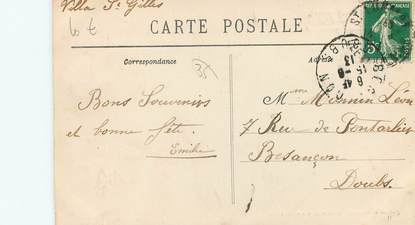 Villa St Gilles
CARTE POSTALE
Correspondance
Adresse
Bons Souvenirs
et bonne fête.
Emilie
Mme Monnin Léon
7 Rue de Pontarlier
Besançon
Doubs.